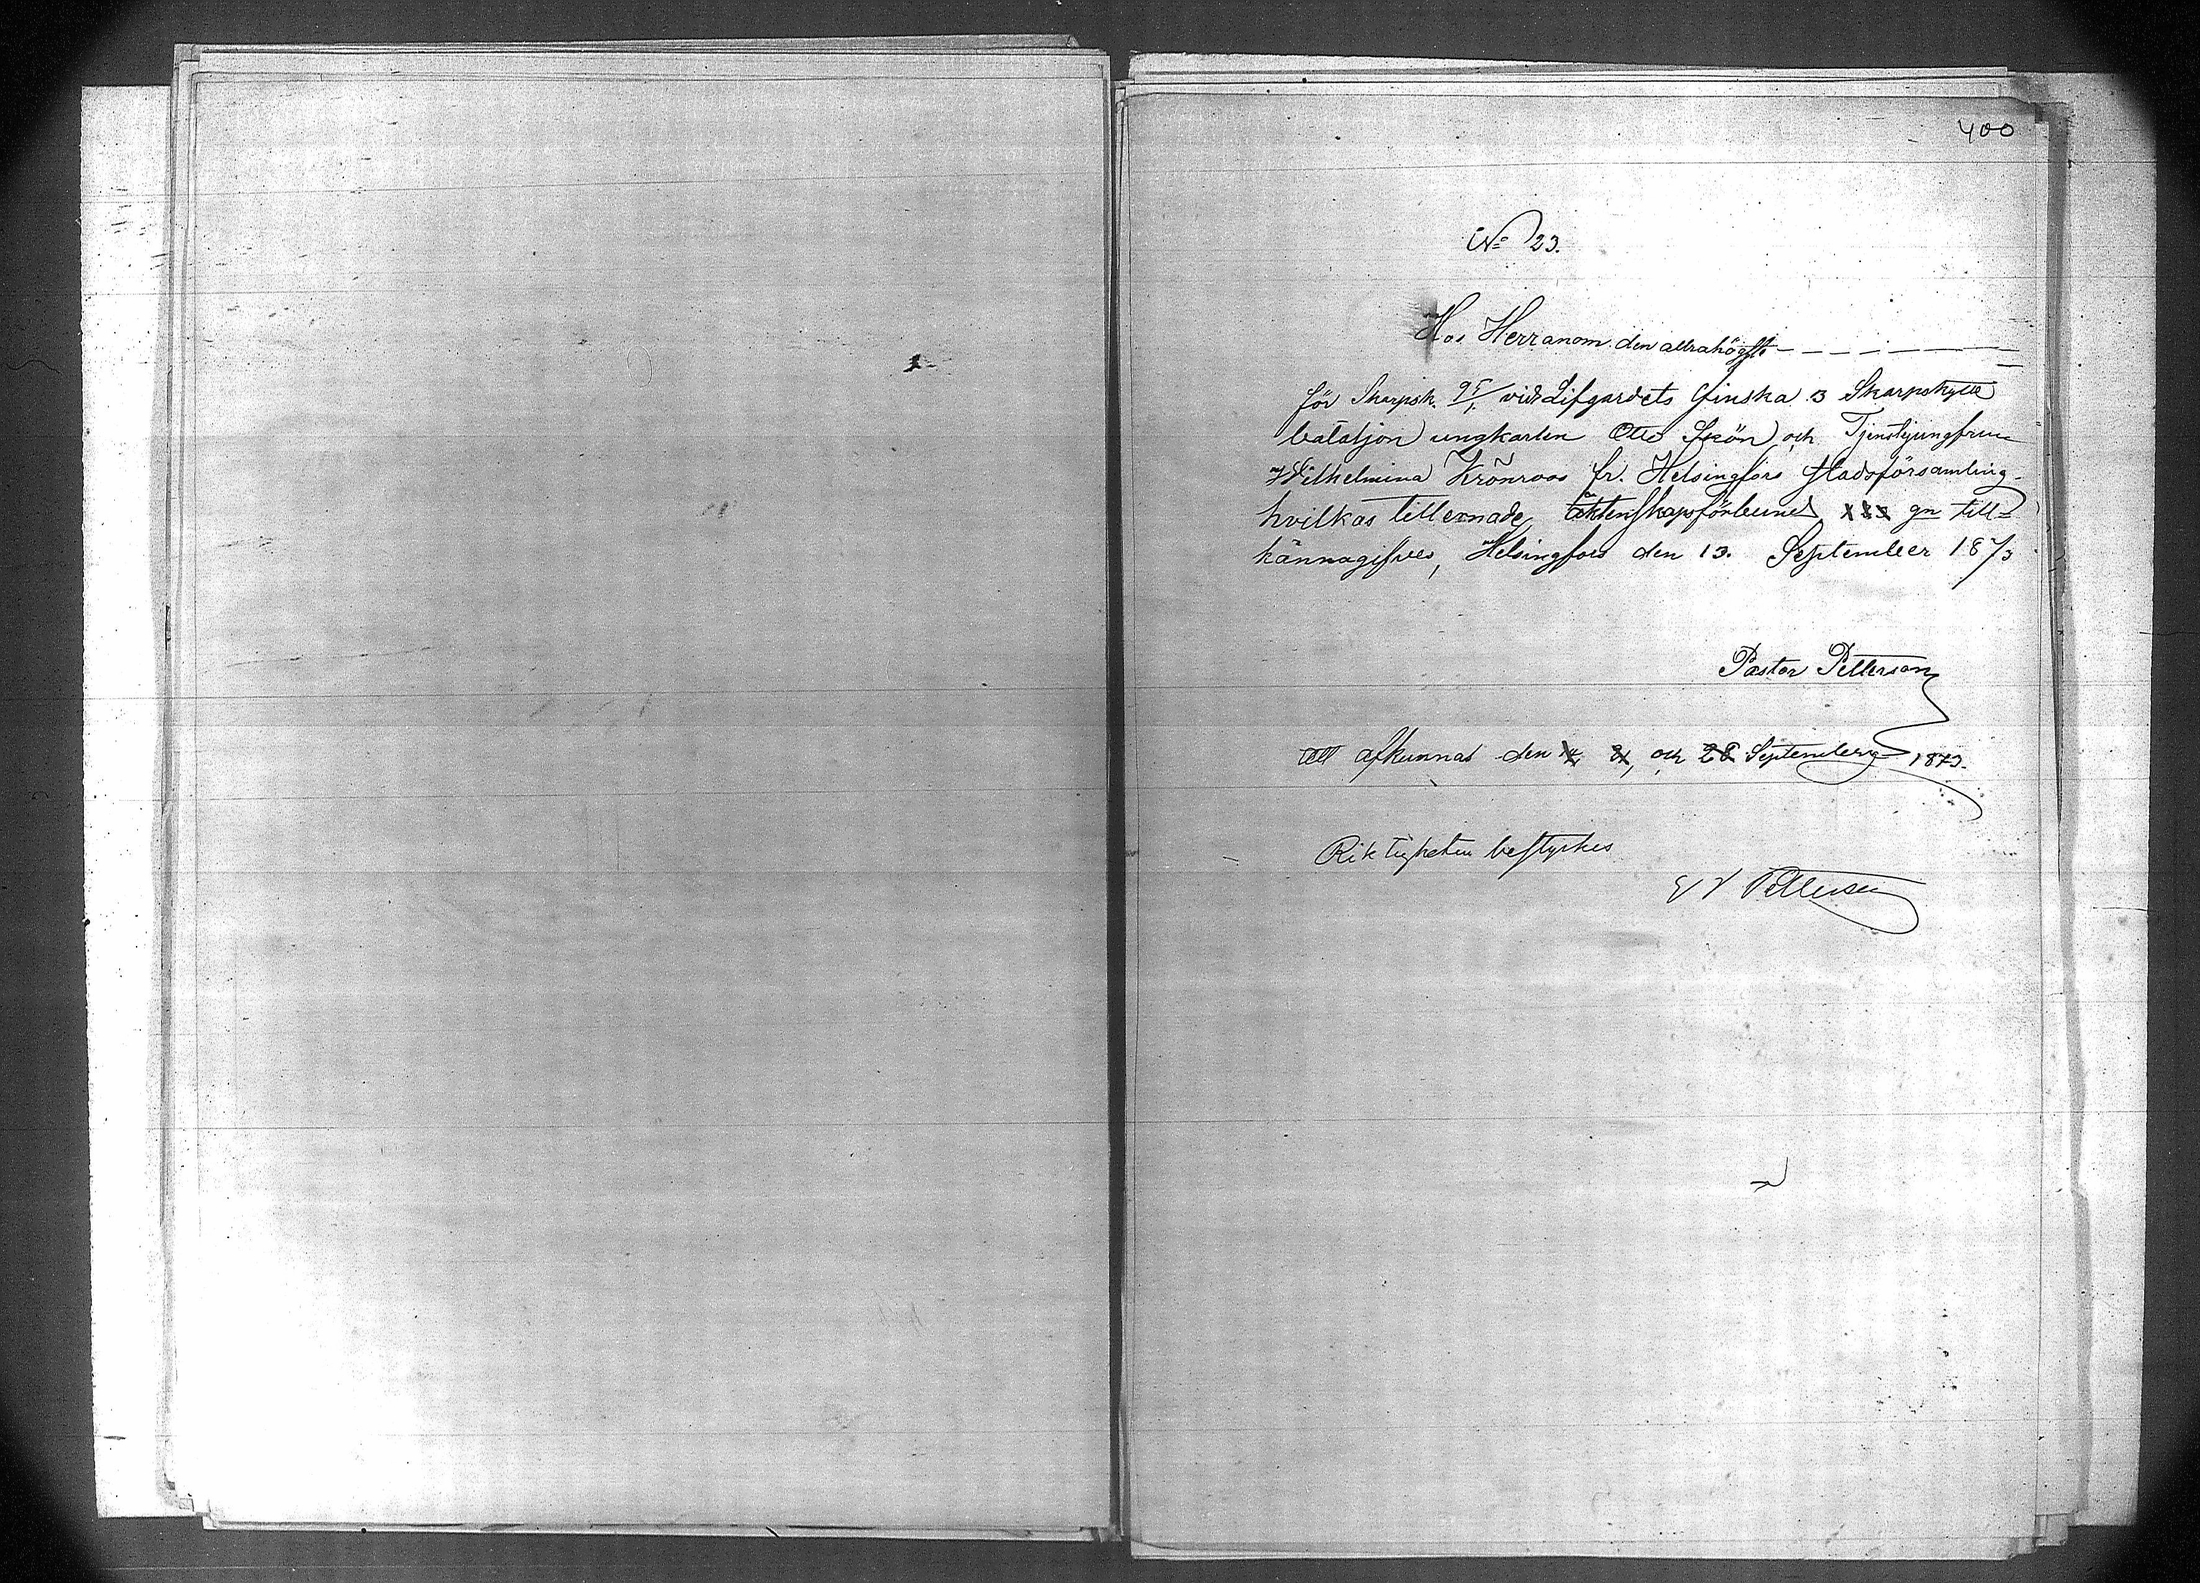 400
No 23.
Hos Herranom den allrahögste
för Skarpsk. vid Lifgardets Finska 3 Skarpskytte
bataljon ungkarlen Otto och Tjenstejungfrun
Wilhelmina Krönroos fr. Helsingfors stadsförsamling
hvilkas tillernade äktenskapsförbund gn till-
kännagifves, Helsingfors den 13. September 1873
Pastor Petterson
att afkunnas den 14, 21, och 28 September 1873.
Riktigheten bestyrkes
Petterson